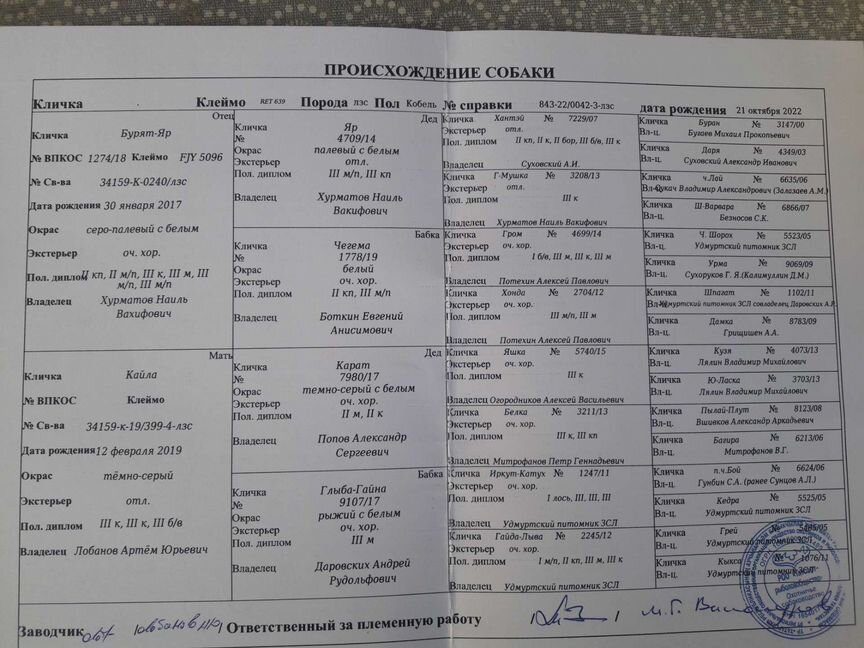 ПРОИСХОЖДЕНИЕ СОБАКИ
Кличка Клеймо RET 639 Порода лзс Пол Кобель № справки 843-22/0042-3-лзс дата рождения 21 октября 2022
Отец
Кличка Бурят-Яр
№ ВПКОС 1274/18 Клеймо FJY 5096
№ Св-ва 34159-К-0240/лзс
Дата рождения 30 января 2017
Окрас серо-палевый с белым
Экстерьер оч. хор.
Пол. диплом II кп, II м/п, III к, III м, III
м/п, III м/п
Владелец Хурматов Наиль
Вахифович
Мать
Кличка Кайла
№ ВПКОС Клеймо
№ Св-ва 34159-к-19/399-4-лзс
Дата рождения 12 февраля 2019
Окрас тёмно-серый
Экстерьер отл.
Пол. диплом III к, III к, III б/в
Владелец Лобанов Артём Юрьевич
Дед
Кличка Яр
№ 4709/14
Окрас палевый с белым
Экстерьер отл.
Пол. диплом III м/п, III кп
Владелец Хурматов Наиль
Вакифович
Бабка
Кличка Чегема
№ 1778/19
Окрас белый
Экстерьер оч. хор.
Пол. диплом II кп, III м/п
Владелец Боткин Евгений
Анисимович
Дед
Кличка Карат
№ 7980/17
Окрас темно-серый с белым
Экстерьер оч. хор.
Пол. диплом II м, II к
Владелец Попов Александр
Сергеевич
Бабка
Кличка Глыба-Гайна
№ 9107/17
Окрас рыжий с белым
Экстерьер оч. хор.
Пол. диплом III м
Владелец Даровских Андрей
Рудольфович
Кличка Хантэй № 7229/07
Экстерьер отл.
Пол. диплом II кп, II к, II бор, III б/в, III к
Владелец Суховский А.И.
Кличка Г-Мушка № 3208/13
Экстерьер отл.
Пол. диплом III к
Владелец Хурматов Наиль Вакифович
Кличка Гром № 4699/14
Экстерьер оч. хор.
Пол. диплом I б/в, III м, III к, III м
Владелец Потехин Алексей Павлович
Кличка Хонда № 2704/12
Экстерьер оч. хор.
Пол. диплом III м/п, III м
Владелец Потехин Алексей Павлович
Кличка Яшка № 5740/15
Экстерьер оч. хор.
Пол. диплом III к
Владелец Огородников Алексей Васильевич
Кличка Белка № 3211/13
Экстерьер оч. хор.
Пол. диплом III к, III кп
Владелец Митрофанов Петр Геннадьевич
Кличка Иркут-Катух № 1247/11
Экстерьер оч. хор.
Пол. диплом I лось, III, III, III
Владелец Удмуртский питомник ЗСЛ
Кличка Гайда-Лыва № 2245/12
Экстерьер оч. хор.
Пол. диплом I м/п, II кп, III м, III к
Владелец Удмуртский питомник ЗСЛ
Кличка Буран № 3147/00
Вл-ц. Бугаев Михаил Прокопьевич
Кличка Даря № 4349/03
Вл-ц. Суховский Александр Иванович
Кличка ч.Лай № 6635/06
Вл-ц. Сукач Владимир Александрович (Залазаев А.М.)
Кличка Ш-Варвара № 6866/07
Вл-ц. Безносов С.К.
Кличка Ч. Шорох № 5523/05
Вл-ц. Удмуртский питомник ЗСЛ
Кличка Урма № 9069/09
Вл-ц. Сухоруков Г. Я.(Калимуллин Д.М.)
Кличка Шпагат № 1102/11
Вл-ц. Удмуртский питомник ЗСЛ совладелец Даровских А.Р.
Кличка Дамка № 8783/09
Вл-ц. Грищишен А.А.
Кличка Кузя № 4073/13
Вл-ц. Лялин Владимир Михайлович
Кличка Ю-Ласка № 3703/13
Вл-ц. Лялин Владимир Михайлович
Кличка Пылай-Плут № 8123/08
Вл-ц. Вшивков Александр Аркадьевич
Кличка Багира № 6213/06
Вл-ц. Митрофанов В.Г.
Кличка п.ч.Бой № 6624/06
Вл-ц. Гунбин С.А. (ранее Сунцов А.Л.)
Кличка Кедра № 5525/05
Вл-ц. Удмуртский питомник ЗСЛ
Кличка Грей № 5485/05
Вл-ц. Удмуртский питомник ЗСЛ
Кличка Кыкса № 1076/11
Вл-ц. Удмуртский питомник ЗСЛ
Заводчик Ответственный за племенную работу